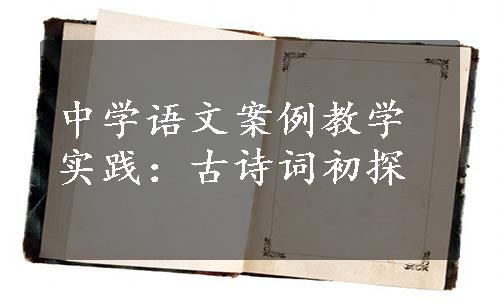 中学语文案例教学
实践：古诗词初探